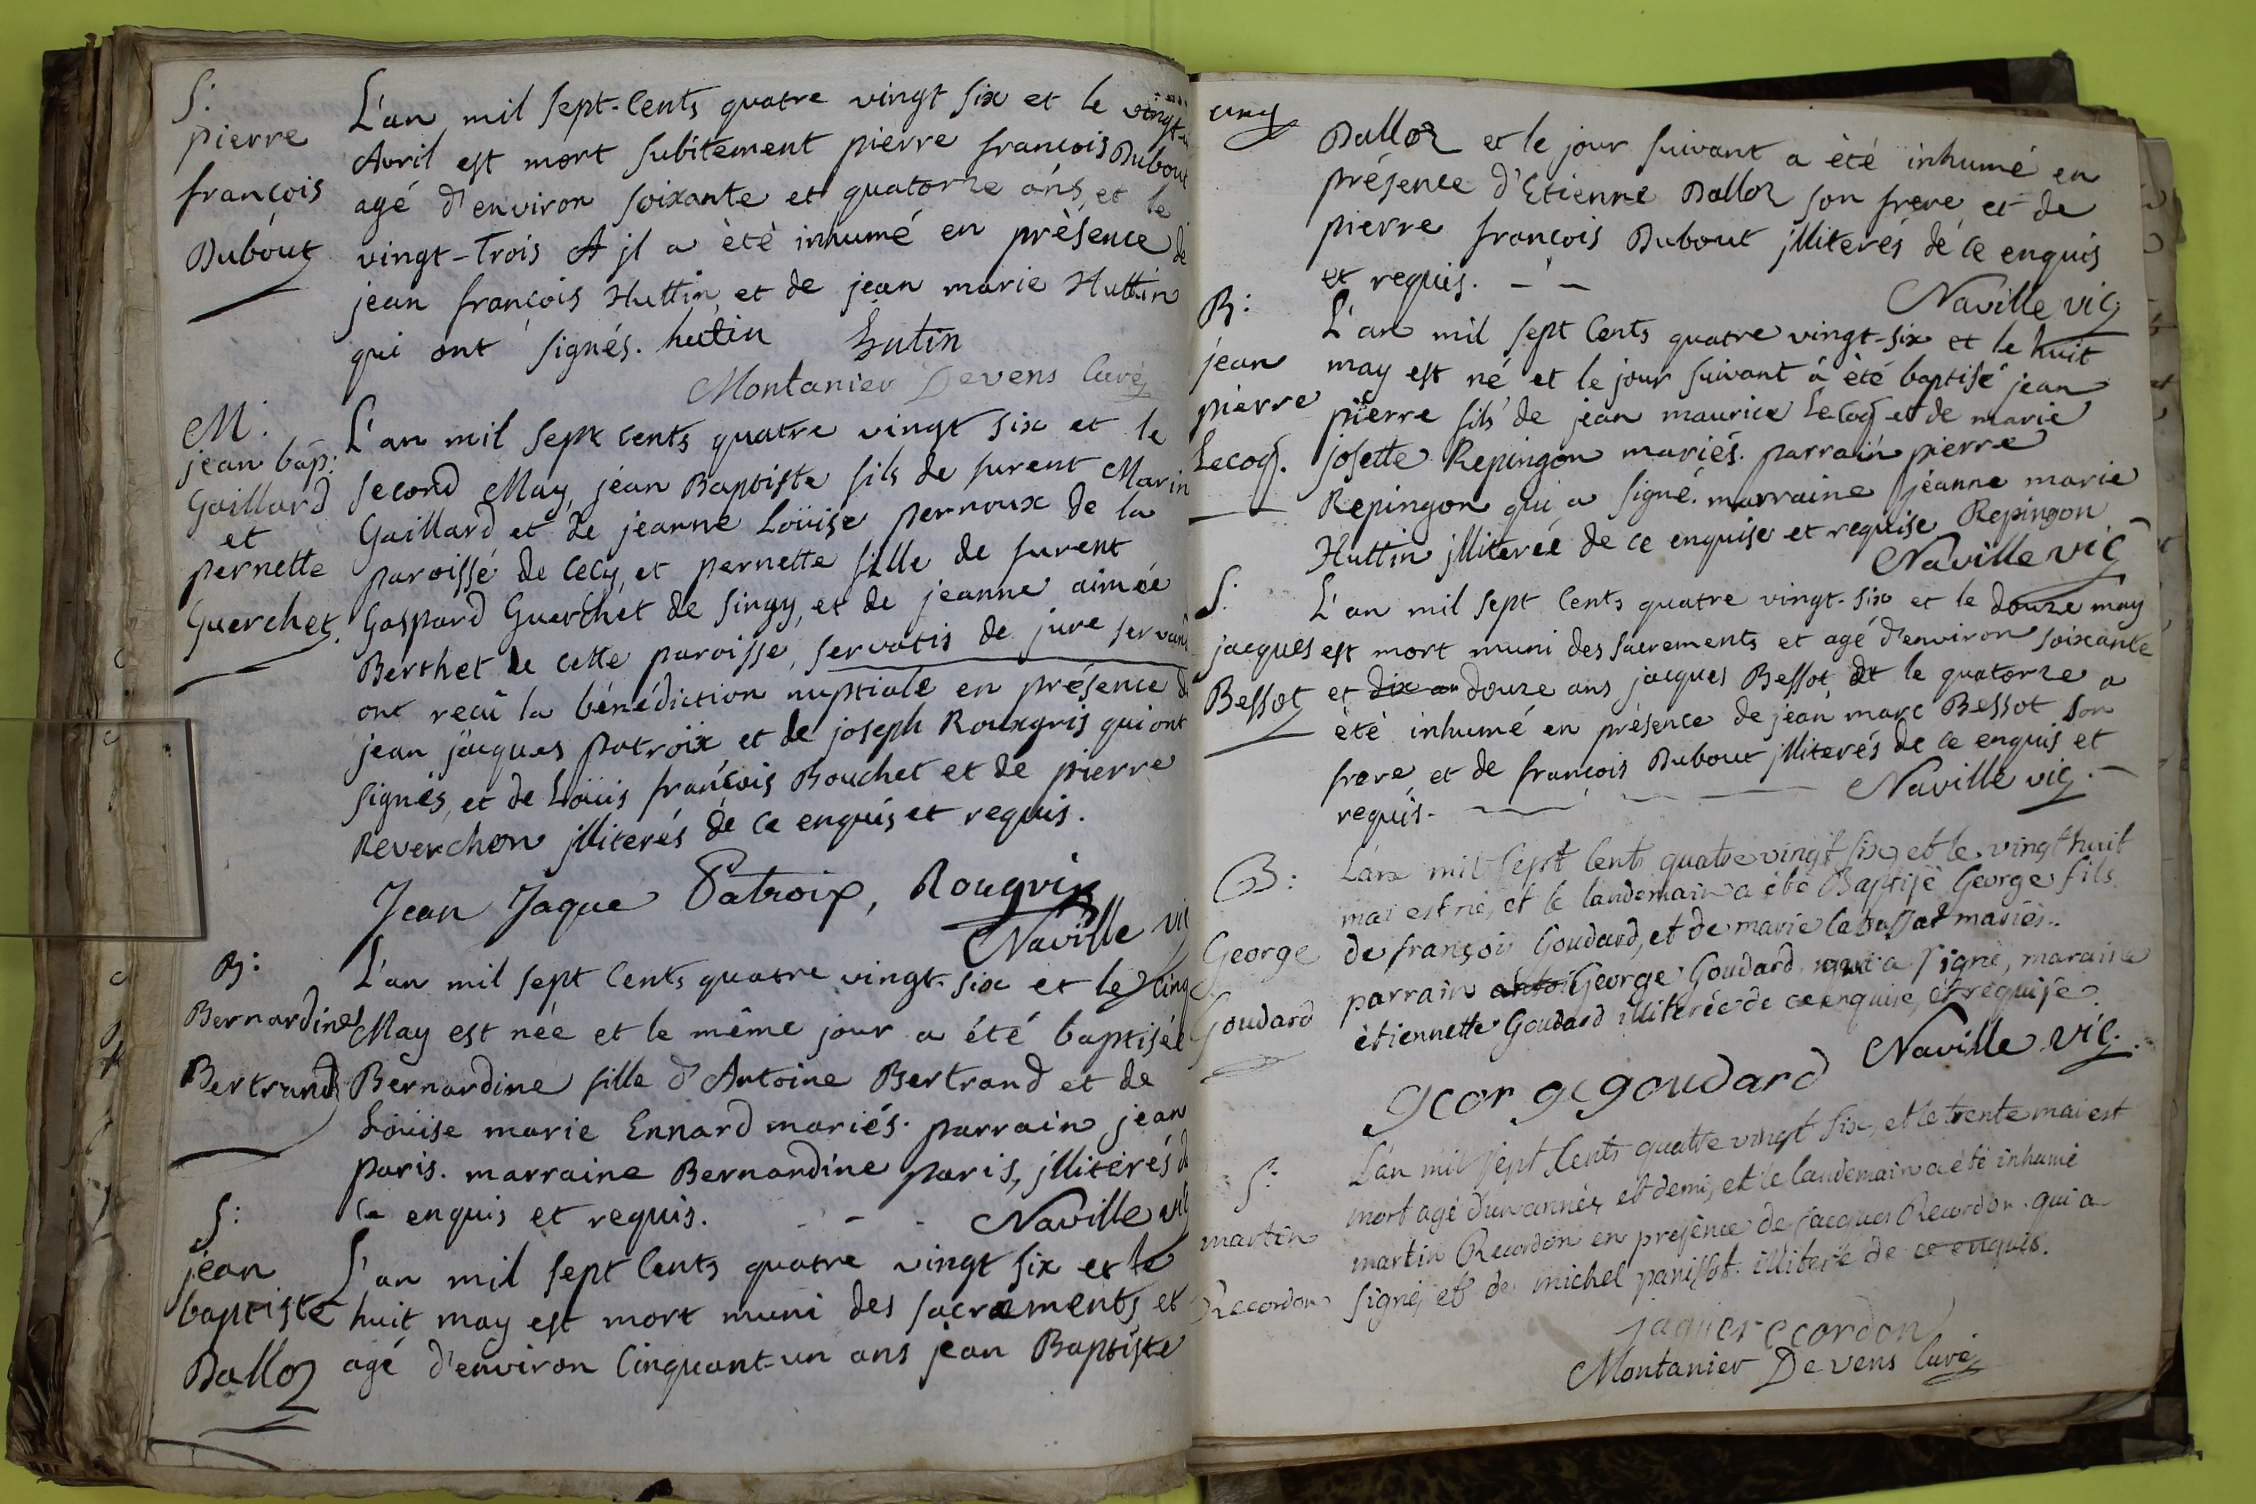 S:
pierre
françois
Dubout
L'an mil sept-Cents quatre vingt six et le
Avril est mort subitement pierre françois Dubout
agé d'environ soixante et quatorze ans, et le
vingt-trois jl a èté inhumé en prèsence de
jean françois Huttin, et de jean marie Huttin
qui ont signés. hutin hutin
Montanier Devens Curé
M:
jean bap:
Gaillard
et
pernette
Guerchet.
L'an mil sept cents quatre vingt six et le
second May, jean Baptiste fils de furent Marin
Gaillard et de jeanne Loüise pernoux de la
paroisse de Cecy, et pernette fille de furent
Gaspard Guerchet de singy, et de jeanne aimée
Berthet de cette paroisse, servatis de jure servandis
ont reçu la bénédiction nuptiale en présence de
jean jacques patroix et de joseph Rouxgris qui ont
signés, et de Loüis françois Bouchet et de pierre
Reverchon jlliterés de ce enquis et requis.
Jean Jaque Patroix, Rougrix
Naville vic
B:
Bernardine
Bertrand
L'an mil sept Cents quatre vingt-six et le cinq
May est née et le même jour a été baptisée
Bernardine fille d'Antoine Bertrand et de
Loüise marie Ennard mariés. parrain jean
paris. marraine Bernardine paris, jlliterés de
ce enquis et requis. - - - Naville vic
S:
jean
baptiste
Dalloz
L'an mil sept Cents quatre vingt six et le
huit may est mort muni des sacrements et
agé d'environ Cinquant-un ans jean Baptiste
cinq
Dalloz et le jour suivant a èté inhumé en
présence d'Etienne Dalloz son frere, et de
pierre françois Dubout jlliterés de ce enquis
et requis. - - Naville vic
B:
jean
pierre
Lecoq.
L'an mil sept Cents quatre vingt-six et le huit
may est né et le jour suivant a èté baptisé jean
pierre fils de jean maurice Lecoq et de marie
josette Repingon mariés. parrain pierre
Repingon qui a signé. marraine jeanne marie
Huttin jlliterée de ce enquise et requise Repingon
Naville vic
S:
jacques
Bessot
L'an mil sept Cents quatre vingt-six et le douze may
est mort muni des sacrements et agé d'environ soixante
et dix an douze ans jacques Bessot, et le quatorze a
èté inhumé en présence de jean marc Bessot son
frere et de françois Dubout jlliterés de ce enquis et
requis. - Naville vic. -
B:
George
Goudard
L'an mil sept Cents quatre vingt six, et le vingt huit
mai est né, et le landemain a èté Baptisé George fils
de françois Goudard, et de marie mariés.
parrain George Goudard qui a signé, maraine
ètiennette Goudard illiterée de ce enquise, et requise.
Naville vic.
george goudard
S:
martin
Recordon
L'an mil sept Cents quatre vingt six, et le trente mai est
mort agé d'un année et demi, et le landemain a èté inhumé
martin Recordon en presence de jacques Recordon qui a
signé, et de michel panissot illiteré de ce enquis.
jaques recordon
Montanier De vens Curé